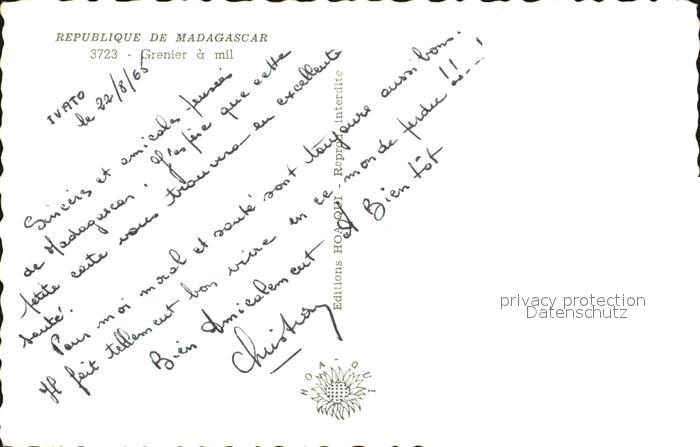 REPUBLIQUE DE MADAGASCAR
3723 - Grenier à mil
IVATO
le 22/8/65
Sincères et amicales pensées
de Madagascar. J'espère que cette
petite carte vous trouvera en excellente
santé.
Pour moi moral et santé sont toujours aussi bons.
Il fait tellement bon vivre en ce monde perdu !!---!
Bien Amicalement et Bien tôt
Christian
Editions HOA-QUI - Reprod. interdite
HOA-QUI
privacy protection
Datenschutz